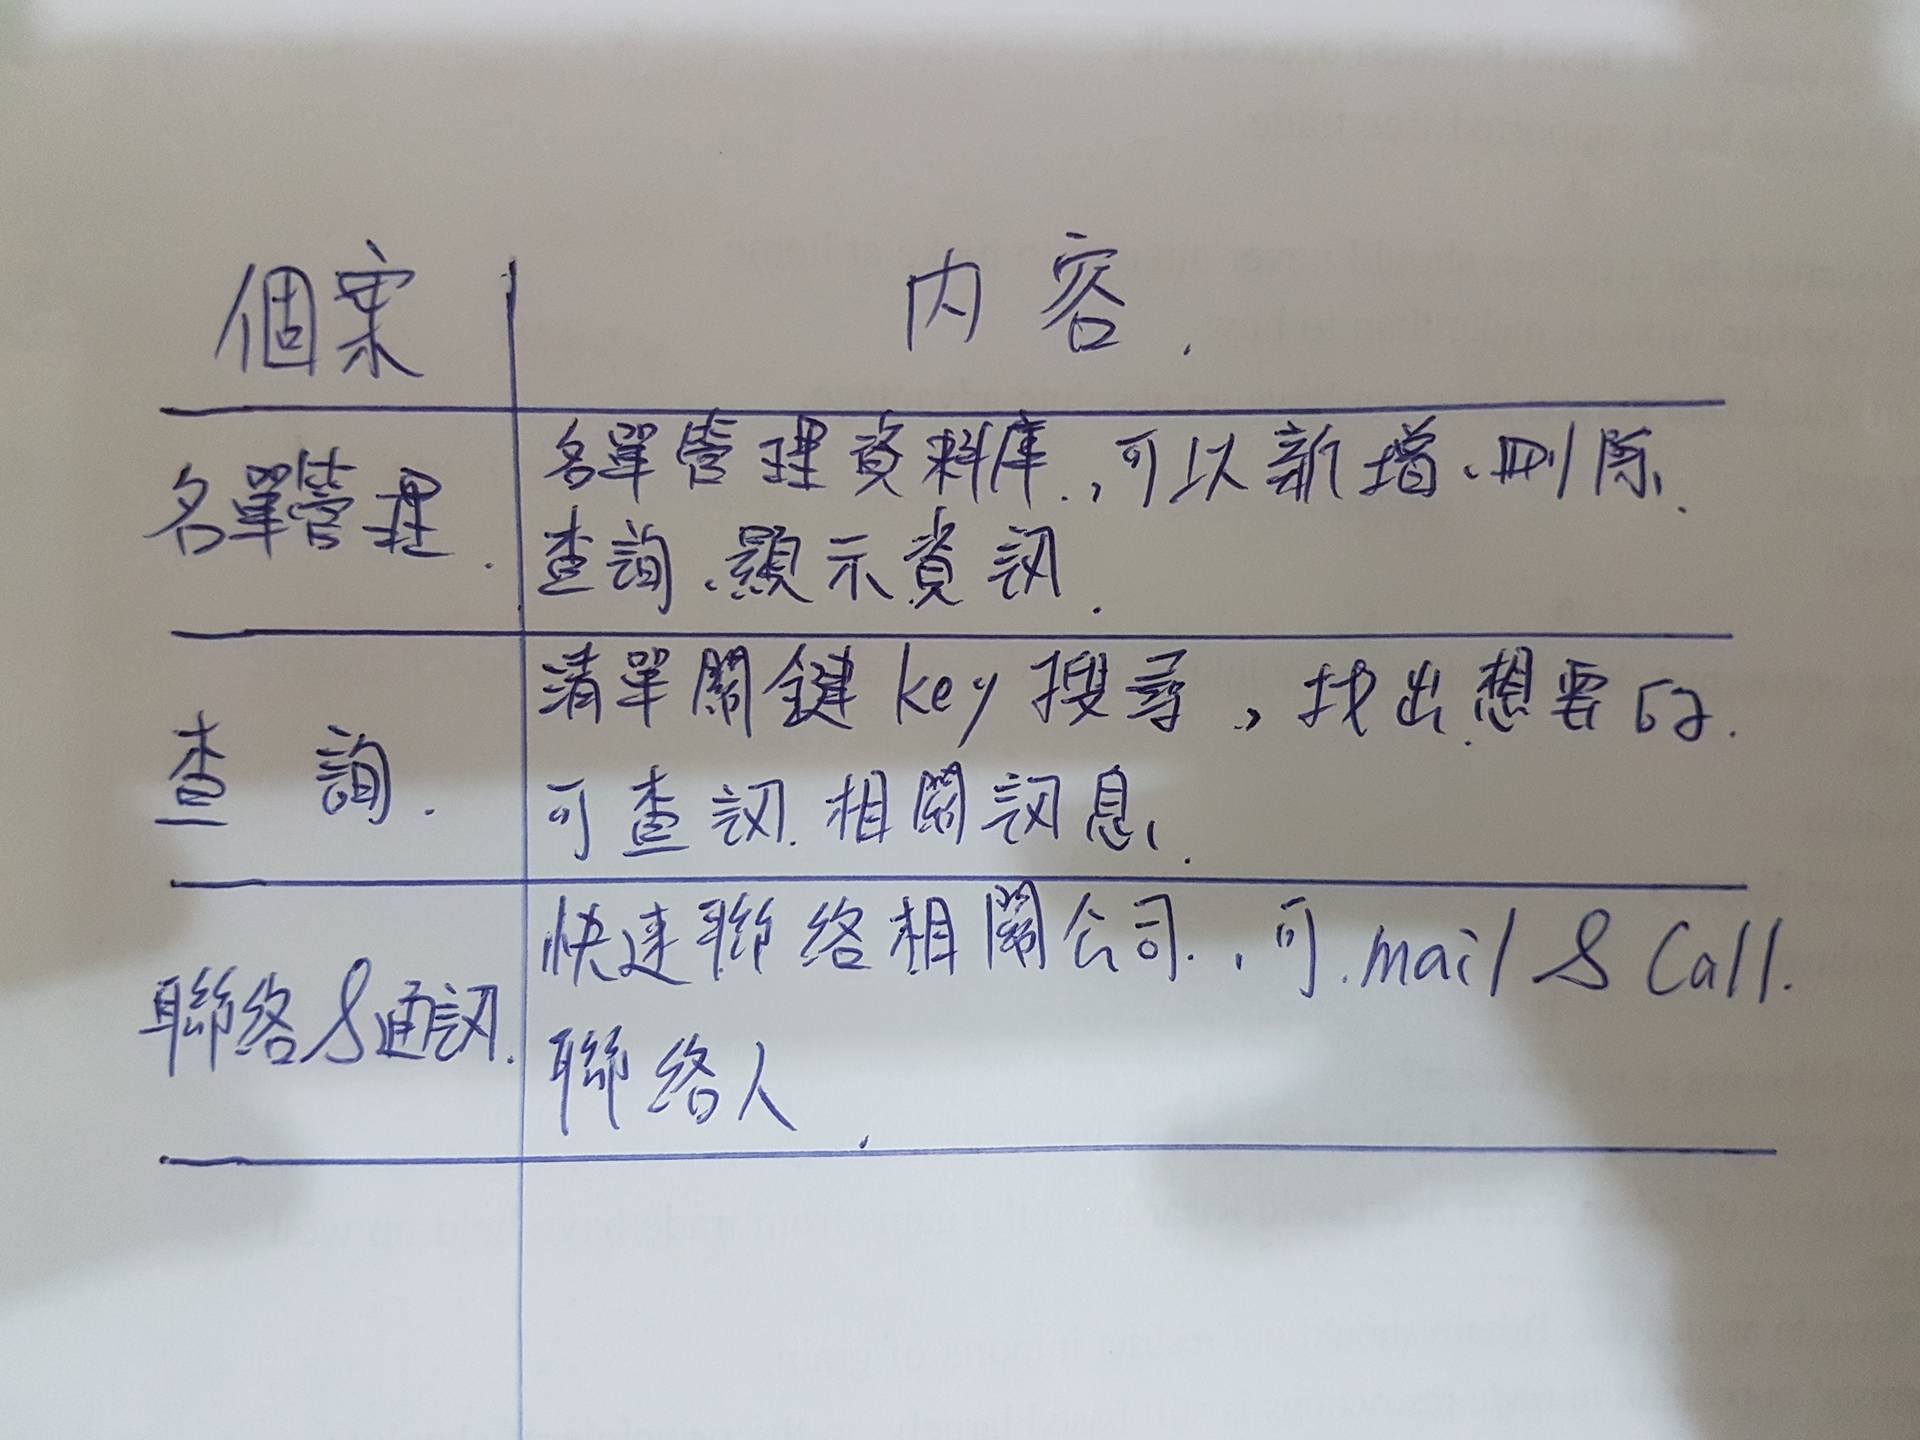 個案 內容.
名單管理. 名單管理資料庫.,可以新增、刪除.
查詢、顯示資訊.
查詢. 清單關鍵key搜尋,找出想要的.
可查訊.相關訊息、.
聯絡&通訊. 快速聯絡相關公司.、可.mail & Call.
聯絡人.